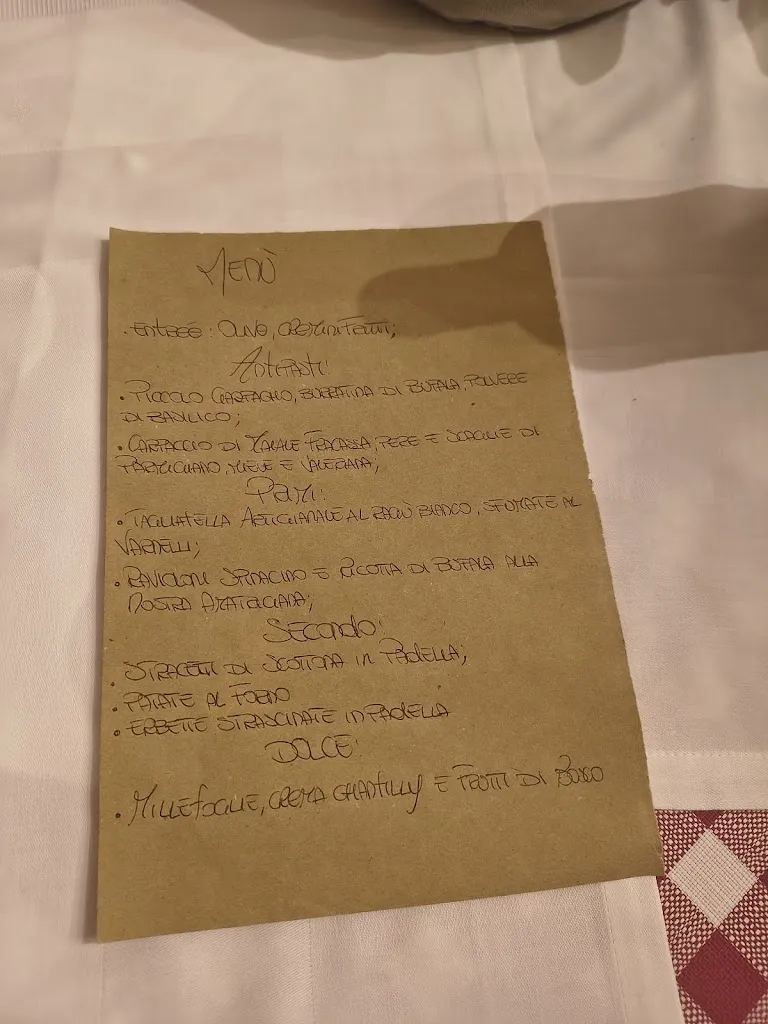 MENÙ
• ENTREÉ: OLIVE, CREMINI FRITTI;
ANTIPASTI:
• PICCOLO GAZPACHO, BURRATINA DI BUFALA, POLVERE
DI BASILICO;
• CARPACCIO DI MAIALE FRACASSA, PERE E SCAGLIE DI
PARMIGIANO, MIELE E VALERIANA;
PRIMI:
• TAGLIATELLA ARTIGIANALE AL RAGÙ BIANCO, SFUMATE AL
VARNELLI;
• RAVIOLONI SPINACINO E RICOTTA DI BUFALA ALLA
NOSTRA AMATRICIANA;
SECONDO:
• STRACETTI DI SCOTTONA IN PADELLA;
• PATATE AL FORNO
• ERBETTE STRASCINATE IN PADELLA
DOLCE:
• MILLEFOGLIE, CREMA CHANTILLY E FRUTTI DI BOSCO